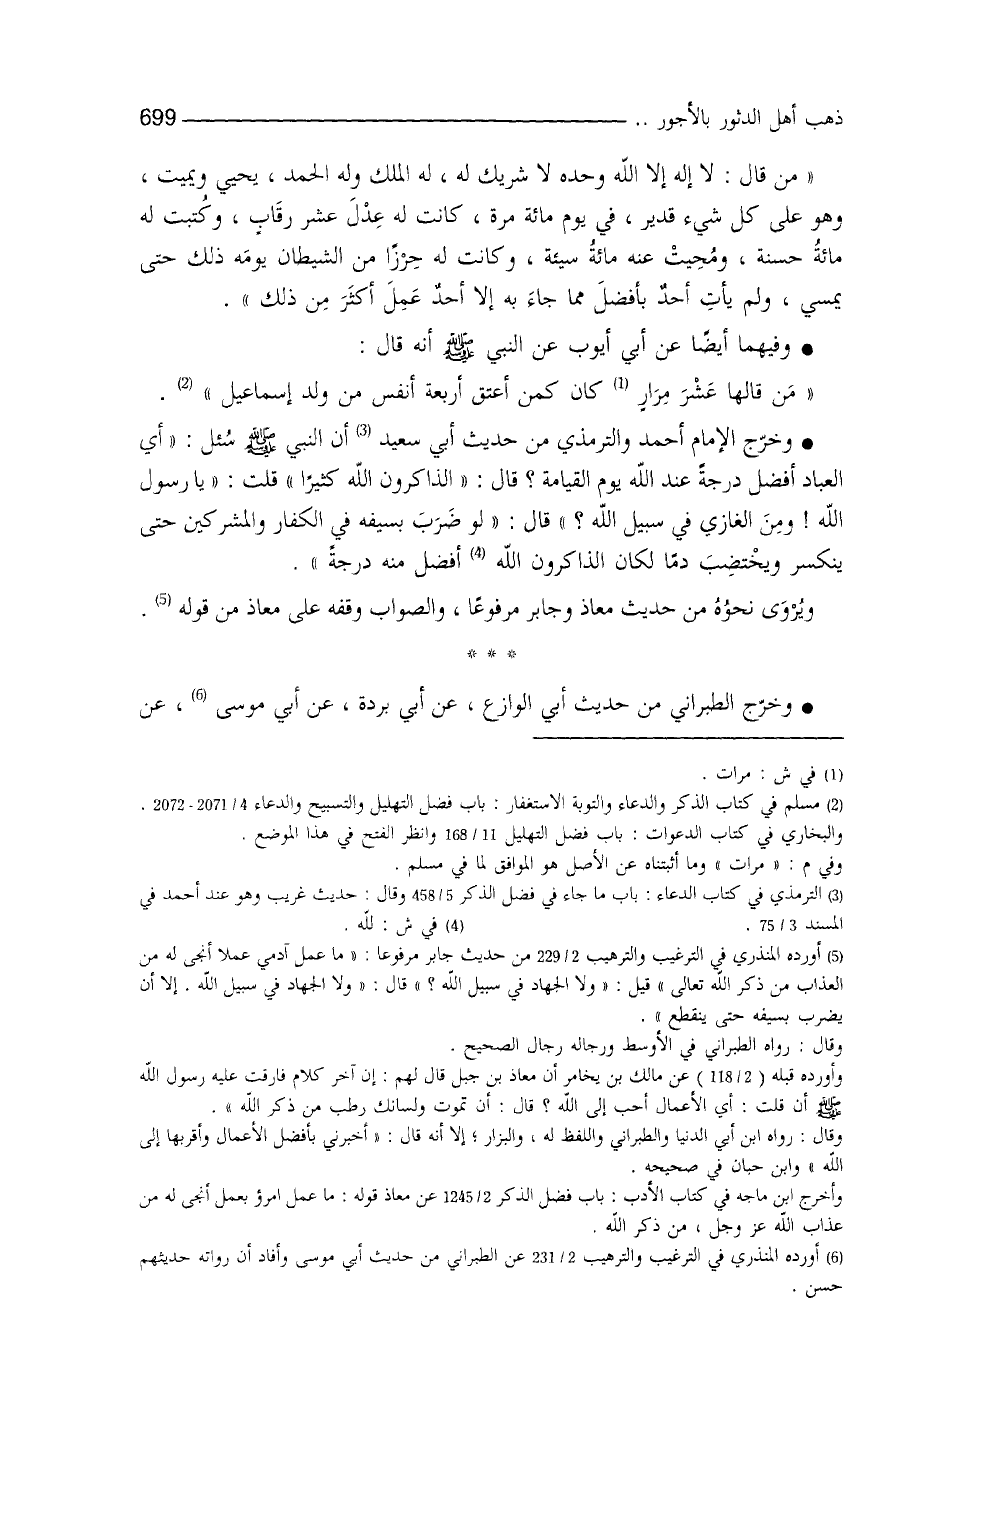 ذهب أهل الدثور بالأجور .. 699
« من قال : لا إله إلا اللّه وحده لا شريك له ، له الملك وله الحمد ، يحيي ويميت ،
وهو على كل شيء قدير ، في يوم مائة مرة ، كانت له عِدْلَ عشر رقَابٍ ، وكُتبت له
مائةُ حسنة ، ومُحِيتْ عنه مائةُ سيئة ، وكانت له حِرْزًا من الشيطان يومَه ذلك حتى
يمسي ، ولم يأتِ أحدٌ بأفضلَ مما جاءَ به إلا أحدٌ عَمِلَ أكثَرَ مِن ذلك » .
● وفيهما أيضًا عن أبي أيوب عن النبي ﷺ أنه قال :
« مَن قالها عَشْرَ مِرَارٍ (1) كان كمن أعتق أربعة أنفس من ولد إسماعيل » (2) .
● وخرّج الإمام أحمد والترمذي من حديث أبي سعيد (3) أن النبي ﷺ سُئل : « أي
العباد أفضل درجةً عند اللّه يوم القيامة ؟ قال : « الذاكرون اللّه كثيرًا » قلت : « يا رسول
اللّه ! ومِنَ الغازي في سبيل اللّه ؟ » قال : « لو ضَرَبَ بسيفه في الكفار والمشركين حتى
ينكسر ويخْتضِبَ دمًا لكان الذاكرون اللّه (4) أفضل منه درجةً » .
ويُرْوَى نحوُهُ من حديث معاذ وجابر مرفوعًا ، والصواب وقفه على معاذ من قوله (5) .
* * *
● وخرّج الطبراني من حديث أبي الوازع ، عن أبي بردة ، عن أبي موسى (6) ، عن
(1) في ش : مرات .
(2) مسلم في كتاب الذكر والدعاء والتوبة الاستغفار : باب فضل التهليل والتسبيح والدعاء 4/ 2071 - 2072 .
والبخاري في كتاب الدعوات : باب فضل التهليل 11 / 168 وانظر الفتح في هذا الموضع .
وفي م : « مرات » وما أثبتناه عن الأصل هو الموافق لما في مسلم .
(3) الترمذي في كتاب الدعاء : باب ما جاء في فضل الذكر 5/ 458 وقال : حديث غريب وهو عند أحمد في
المسند 3 / 75 . (4) في ش : للّه .
(5) أورده المنذري في الترغيب والترهيب 2/ 229 من حديث جابر مرفوعا : « ما عمل آدمي عملا أنجى له من
العذاب من ذكر اللّه تعالى » قيل : « ولا الجهاد في سبيل اللّه ؟ » قال : « ولا الجهاد في سبيل اللّه . إلا أن
يضرب بسيفه حتى ينقطع » .
وقال : رواه الطبراني في الأوسط ورجاله رجال الصحيح .
وأورده قبله ( 2/ 118 ) عن مالك بن يخامر أن معاذ بن جبل قال لهم : إن آخر كلام فارقت عليه رسول اللّه
ﷺ أن قلت : أي الأعمال أحب إلى اللّه ؟ قال : أن تموت ولسانك رطب من ذكر اللّه » .
وقال : رواه ابن أبي الدنيا والطبراني واللفظ له ، والبزار ؛ إلا أنه قال : « أخبرني بأفضل الأعمال وأقربها إلى
اللّه » وابن حبان في صحيحه .
وأخرج ابن ماجه في كتاب الأدب : باب فضل الذكر 2/ 1245 عن معاذ قوله : ما عمل امرؤ بعمل أنجى له من
عذاب اللّه عز وجل ، من ذكر اللّه .
(6) أورده المنذري في الترغيب والترهيب 2/ 231 عن الطبراني من حديث أبي موسى وأفاد أن رواته حديثهم
حسن .